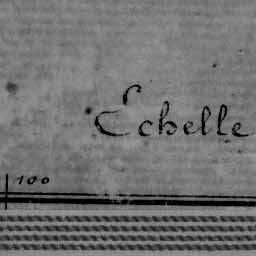 Echelle
100